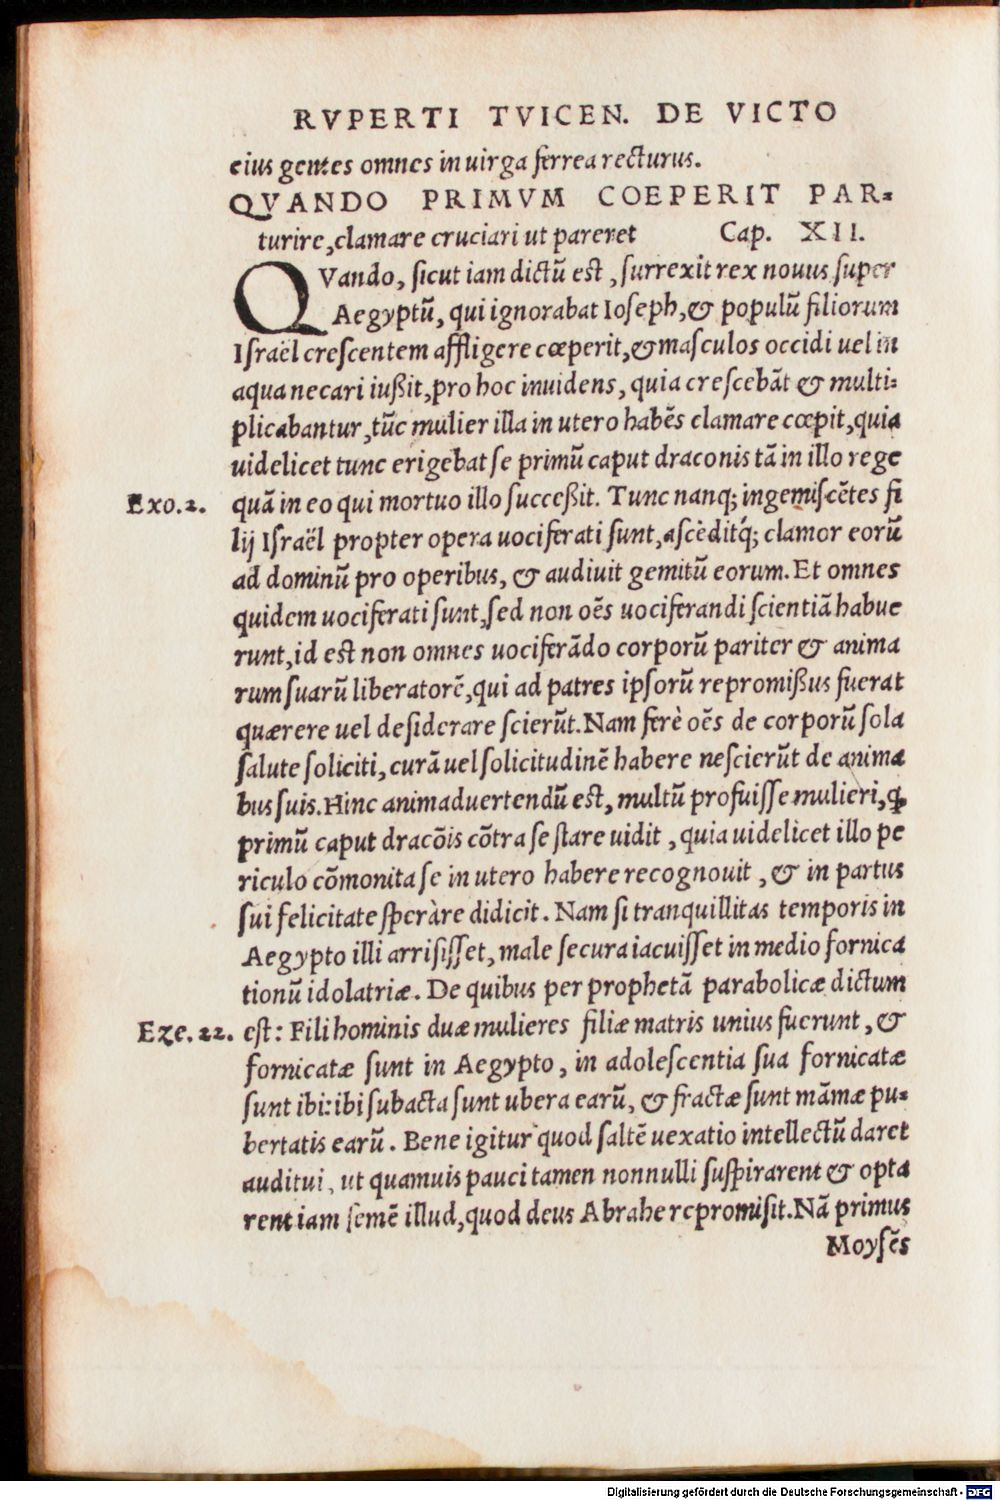 RVPERTI TVICEN. DE VICTO
eius gentes omnes in uirga ferrea recturus.
QVANDO PRIMVM COEPERIT PAR=
turire, clamare cruciari ut pareret Cap. XII.
QVando, sicut iam dictũ est, surrexit rex nouus super
Aegyptũ, qui ignorabat Ioseph, & populũ filiorum
Israël crescentem affligere cœperit, & masculos occidi uel in
aqua necari iußit, pro hoc inuidens, quia crescebãt & multi=
plicabantur, tũc mulier illa in utero habẽs clamare cœpit, quia
uidelicet tunc erigebat se primũ caput draconis tã in illo rege
Exo.2. quã in eo qui mortuo illo succeßit. Tunc nanq; ingemiscẽtes fi
lij Israël propter opera uociferati sunt, ascẽditq́; clamor eorũ
ad dominũ pro operibus, & audiuit gemitũ eorum. Et omnes
quidem uociferati sunt, sed non oẽs uociferandi scientiã habue
runt, id est non omnes uociferãdo corporũ pariter & anima
rum suarũ liberatorẽ, qui ad patres ipsorũ repromißus fuerat
quærere uel desiderare scierũt. Nam ferè oẽs de corporũ sola
salute soliciti, curã uel solicitudinẽ habere nescierũt de anima
bus suis. Hinc animaduertendũ est, multũ profuisse mulieri, ꝙ
primũ caput dracõis cõtra se stare uidit, quia uidelicet illo pe
riculo cõmonita se in utero habere recognouit, & in partus
sui felicitate speràre didicit. Nam si tranquillitas temporis in
Aegypto illi arrisisset, male secura iacuisset in medio fornica
tionũ idolatriæ. De quibus per prophetã parabolicæ dictum
Eze.22. est: Fili hominis duæ mulieres filiæ matris unius fuerunt, &
fornicatæ sunt in Aegypto, in adolescentia sua fornicatæ
sunt ibi: ibi subacta sunt ubera earũ, & fractæ sunt mãmæ pu=
bertatis earũ. Bene igitur quod saltẽ uexatio intellectũ daret
auditui, ut quamuis pauci tamen nonnulli suspirarent & opta
rent iam semẽ illud, quod deus Abrahe repromisit. Nã primus
Moysẽs
Digitalisierung gefördert durch die Deutsche Forschungsgemeinschaft - DFG